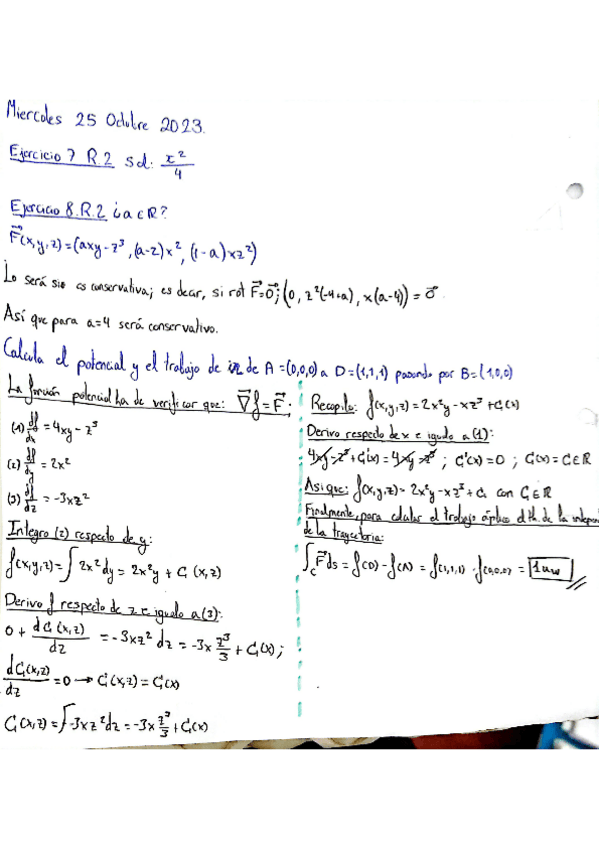 Miercoles 25 Octubre 2023.
Ejercicio 7 R.2 Sol: x²/4
Ejercicio 8.R.2 ¿a∈R?
F⃗(x,y,z)=(axy-z³,(a-2)x²,(1-a)xz²)
Lo será sii es conservativa; es decir, si rot F⃗=0⃗; (0, z²(-4+a), x(a-4)) = 0⃗
Así que para a=4 será conservativo.
Calcula el potencial y el trabajo de ir de A=(0,0,0) a D=(1,1,1) pasando por B=(1,0,0)
La función potencial ha de verificar que: ∇⃗f=F⃗:
(1) df/dx = 4xy - z³
(2) df/dy = 2x²
(3) df/dz = -3xz²
Integro (2) respecto de y:
f(x,y,z)=∫2x²dy=2x²y+G(x,z)
Derivo f respecto de z e igualo a (3):
0+dG(x,z)/dz = -3xz²dz=-3x z³/3+G(x);
dG(x,z)/dz=0→G(x,z)=G(x)
G(x,z)=∫-3xz²dz=-3x z³/3+G(x)
Recopilo: f(x,y,z)=2x²y-xz³+G(x)
Derivo respecto de x e igualo a (1):
4xy-z³+G'(x)=4xy-z³; G'(x)=0; G(x)=G∈R
Asi que: f(x,y,z)=2x²y-xz³+G con G∈R
Finalmente, para calular el trabajo aplico el th. de la indepen
de la trayectoria:
∫_C F⃗ds=f(D)-f(A)=f(1,1,1)-f(0,0,0)=1uw